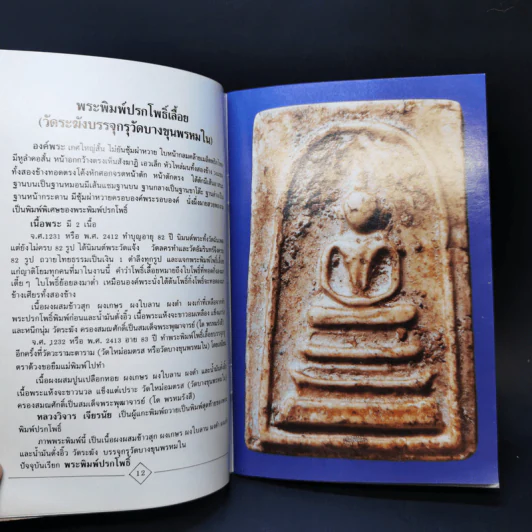 พระพิมพ์ปรกโพธิ์เลื้อย
(วัดระฆังบรรจุกรุวัดบางขุนพรหมใน)
องค์พระ เกศใหญ่สั้น ไม่ยันซุ้มผ่าหวาย ใบหน้ากลมคล้ายเมล็ด
มีหูลำคอสั้น หน้าอกกว้างตรงเห็นสังฆาฏิ เอวเล็ก หัวไหล่มนทั้งสองข้าง
ทั้งสองข้างทอดตรงโค้งหักศอกจรดหน้าตัก หน้าตักตรง ใต้ตักมีเส้น
ฐานบนเป็นฐานหมอนมีเส้นแซมฐานบน ฐานกลางเป็นฐานขาโต๊ะ
ฐานหน้ากระดาน มีซุ้มผ่าหวายครอบองค์พระรอบองค์
เป็นพิมพ์พิเศษของพระพิมพ์ปรกโพธิ์
เนื้อพระ มี 2 เนื้อ
จ.ศ.1231 หรือ พ.ศ. 2412 ทำบุญอายุ 82 ปี นิมนต์พระทั้งวัด
แต่ยังไม่ครบ 82 รูป ได้นิมนต์พระวัดแจ้ง วัดลครทำและวัดอัมรินทร์
82 รูป ถวายไทยธรรมเป็นเงิน 1 ตำลึงทุกรูป และแจกพระพิมพ์
แก่ญาติโยมทุกคนที่มาในงานนี้ คำว่าโพธิ์เลื้อยหมายถึงใบโพธิ์
เตี้ย ๆ ใบโพธิ์ย้อยลงมาต่ำ เหมือนองค์พระนั่งใต้ต้นโพธิ์กิ่งโพธิ์
ข้างเศียรทั้งสองข้าง
เนื้อผงผสมข้าวสุก ผงเกษร ผงใบลาน ผงดำ ผงเก่าที่เหลือ
พระปรกโพธิ์พิมพ์ก่อนและน้ำมันตั้งอิ้ว เนื้อพระแห้งจะขาวอมเหลือง
และหนึกนุ่ม วัดระฆัง ครองสมณศักดิ์เป็นสมเด็จพระพุฒาจารย์ (โต
จ.ศ. 1232 หรือ พ.ศ. 2413 อายุ 83 ปี ทำพระพิมพ์โพธิ์เลื้อย
อีกครั้งที่วัดวะรามะตาราม (วัดใหม่อมตรส หรือวัดบางขุนพรหมใน)
ตราด้วงขอยืมแม่พิมพ์ไปทำ
เนื้อผงผสมปูนเปลือกหอย ผงเกษร ผงใบลาน ผงดำ และน้ำมัน
เนื้อพระแห้งจะขาวนวล แข็งแต่เปราะ วัดใหม่อมตรส (วัดบางขุนพรหมใน)
ครองสมณศักดิ์เป็นสมเด็จพระพุฒาจารย์ (โต พรหมรังสี)
หลวงวิจารณ์ เจียรนัย เป็นผู้แกะพิมพ์ถวายเป็นพิมพ์สุดท้าย
พิมพ์ปรกโพธิ์
ภาพพระพิมพ์นี้ เป็นเนื้อผงผสมข้าวสุก ผงเกษร ผงใบลาน ผงดำ
และน้ำมันตั้งอิ้ว วัดระฆัง บรรจุกรุวัดบางขุนพรหมใน
ปัจจุบันเรียก พระพิมพ์ปรกโพธิ์
12